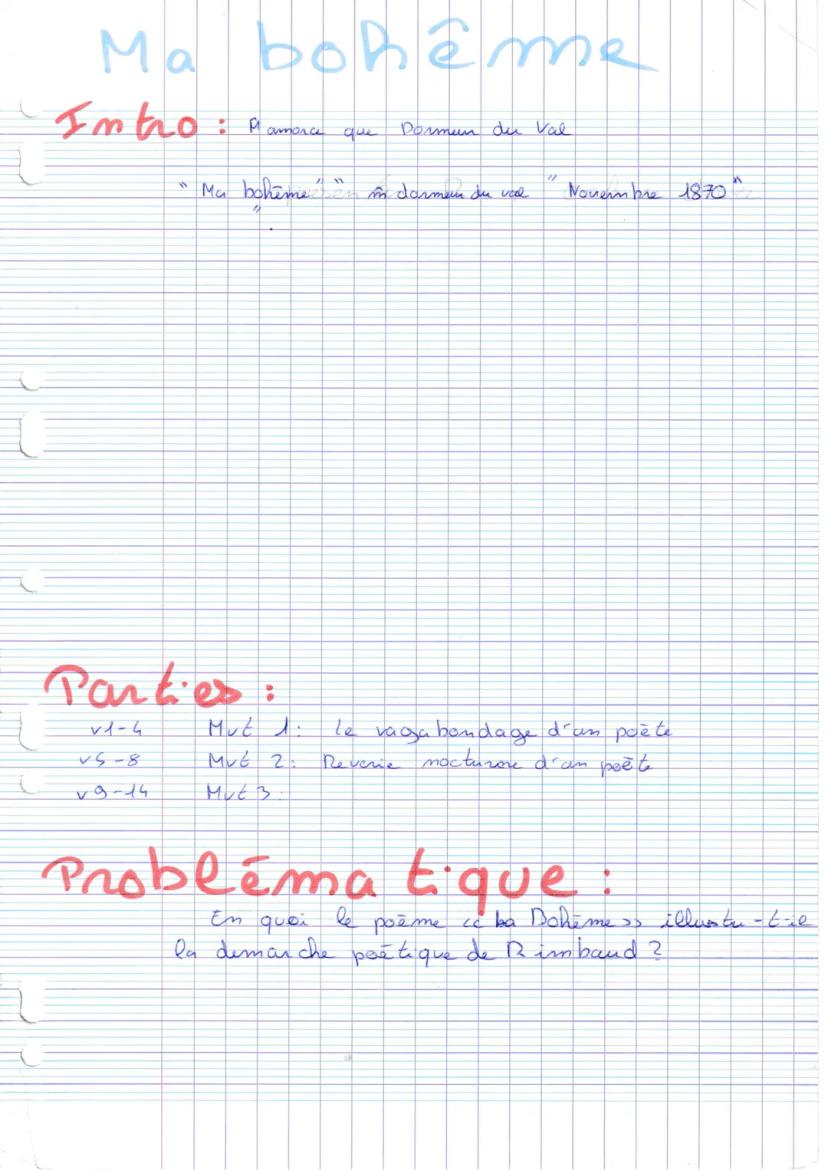 Ma bohême
Intro : M amorce que Dormeur du Val
" Ma bohême " " m̂ dormeur du val " Novembre 1870 "
" .
Parties :
v1-4 Mvt 1 : le vagabondage d'un poète
v5-8 Mvt 2 : Reverie nocturne d'un poète
v9-14 Mvt 3 :
Problématique :
En quoi le poème << Ma Bohème >> illustre-t-il
la demarche poétique de Rimbaud ?